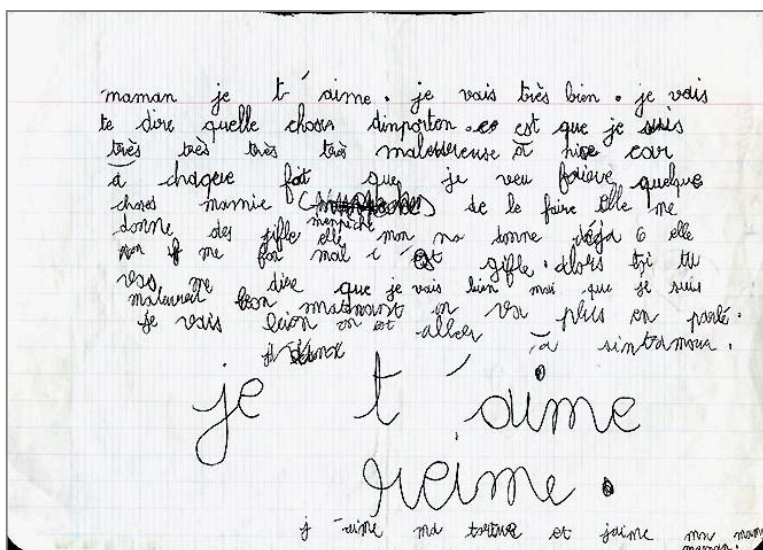 maman je t'aime. je vais très bien. je vais
te dire quelle choses dinporten. c est que je suis
très très très très malereuse a nise car
à chaqeue foit que je veu faire quelque
choses mamie de le faire Elle me
menpèche
donne des gifle elle mon na donne déga 6 elle
me fon mal c'est gifle. alors toi tu
vas me dire que je vais bien mai que je suis
malereuse bon maintenant on va plus en parlé.
je vais bien on est aller
à sintamour.
je t'aime
reime.
j'aime ma tortue et j'aime ma mami
maman.